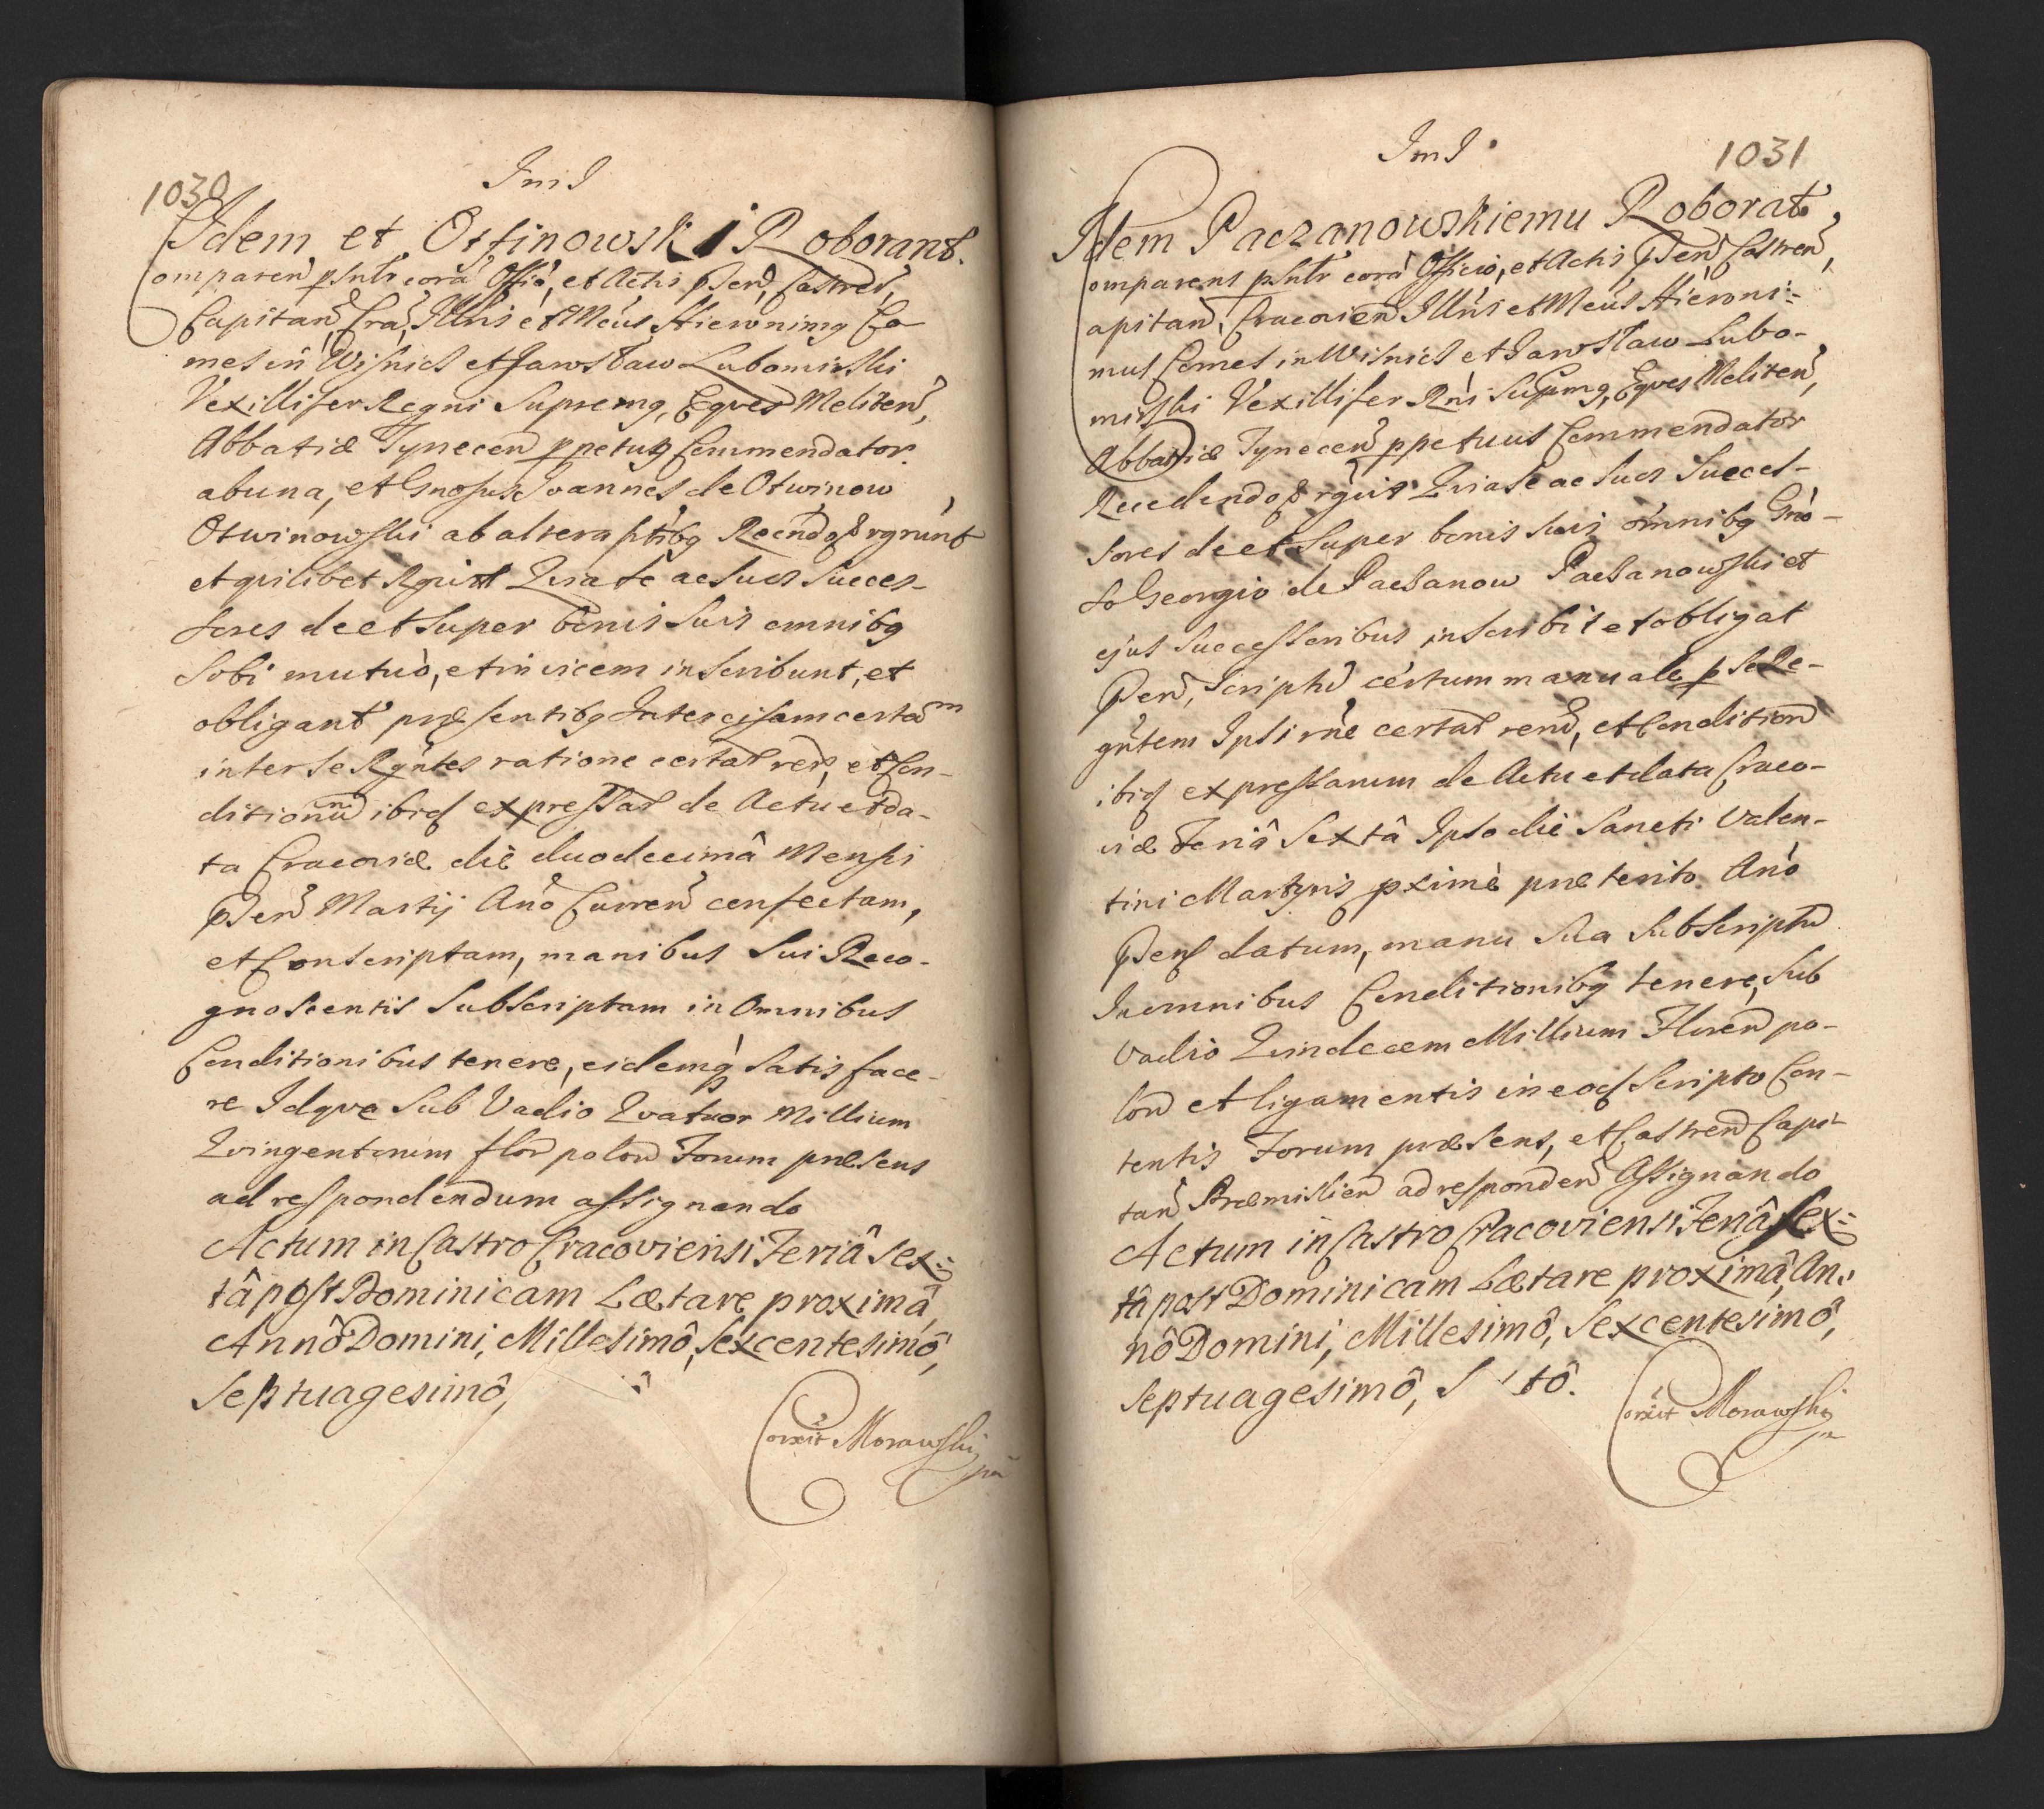 1030
Idem et Otfinowski Roborant.
omparen pńtr corā Offió, et Actis pńsen, Castren,
Capitan, Cra, Illris et Mcus Hieronimg Co
mes in Wisnicz et Jarosław Lubomirski
Vexillifer Regni Supremg, Eqves Meliten,
Abbatiæ Tynecen ppetug Commendator
abuna, et Gnosus Joannes de Otwinow
Otwinowski ab altera ptibg Recndo
et qvilibet Rgnit Qvia se ac suos succes-
sores de et super bonis suis omnibg
sobi mutuò, et in vicem inscribunt, et
obligant præsentibg Intercisam certam
inter se Rgntes ratione certar rer, et Con-
ditionũ ibiq expressar de Actu et da-
ta Cracoviæ diè duodecimâ Mensis
pńsen Martij Anò Curren confectam,
et Conscriptam, manibus sui Reco-
gnoscentis Subscriptam in Omnibus
Conditionibus tenere, eidemq satisface-
re Idqve Sub Vadio Qvatuor Millium
Qvingentorum flor polon Forum præsens
ad respondendum assignando
Actum in Castro Cracoviensi Feriâ Sex=
tâ post Dominicam Lætare proximâ,
Annô Domini, Millesimô, Sexcentesimô,
Septuagesimô,
Corexit Morawski
1031
Idem Paczanowskiemu Roborat
omparens pńtr corā Officio, et Actis pńsen Castren,
apitan, Cracovien Illris et Mcus Hieroni=
mus Comes in Wisnicz et Jarosław Lubo-
mirski Vexillifer Rni Supmg, Eqves Meliten,
Abbatiæ Tynecen ppetuus Commendator
Recedendo Qvia se ac suos succes-
sores de et super bonis suis omnibg Gno-
so Georgio de Paczanow Paczanowski et
ejus successoribus inscribit et obligat
pńsen, scriptũ certum manuale p se Re-
gntem Ipsi rne certar rerũ, et Condition
ibiq expressarum de Actu et data Craco-
viæ Feriâ Sextâ Ipso diè Sancti Valen-
tini Martyris pximè præterito Anò
pńsen datum, manu sua subscriptũ
In omnibus Conditionibg tenere, Sub
Vadio Qvindecem Millium Floren po-
lon et ligamentis in eoq Scripto Con-
tentis Forum præsens, et Castren Capi-
tan Præmislien ad responden Assignando
Actum in Castro Cracoviensi Feriâ Sex=
tâ post Dominicam Lætare proximâ, An-
nô Domini, Millesimô, Sexcentesimô,
Septuagesimô,
Corexit Morawski